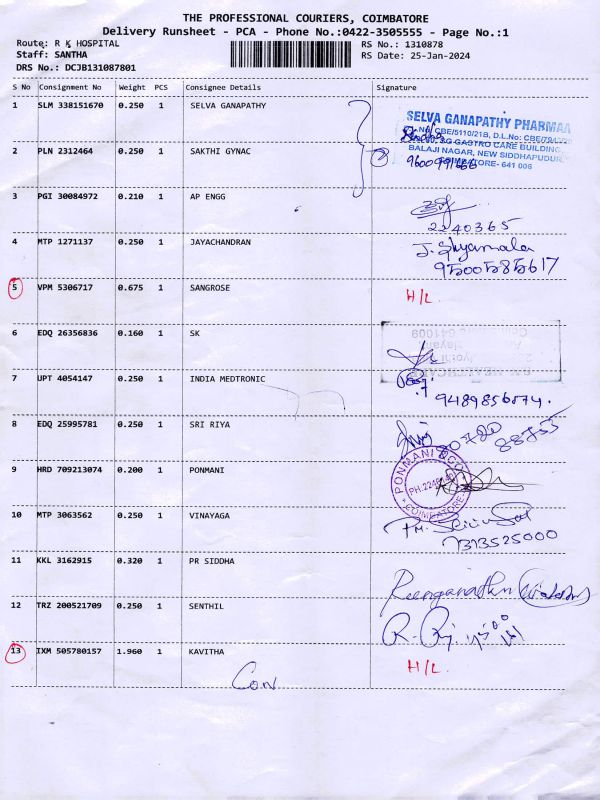 THE PROFESSIONAL COURIERS, COIMBATORE
Delivery Runsheet - PCA - Phone No.:0422-3505555 - Page No.:1
Route: R K HOSPITAL
RS No.: 1310878
Staff: SANTHA
RS Date: 25-Jan-2024
DRS No.: DCJB131087801
S No Consignment No Weight PCS Consignee Details Signature
1 SLM 338151670 0.250 1 SELVA GANAPATHY
SELVA GANAPATHY PHARMAA
SG GASTRO CARE BUILDING,
BALAJI NAGAR, NEW SIDDHAPUDUR,
COIMBATORE- 641 006
2 PLN 2312464 0.250 1 SAKTHI GYNAC
3 PGI 30084972 0.210 1 AP ENGG
2240365
4 MTP 1271137 0.250 1 JAYACHANDRAN
J. Shyamala
9500585617
5 VPM 5306717 0.675 1 SANGROSE H/L.
6 EDQ 26356836 0.160 1 SK
7 UPT 4054147 0.250 1 INDIA MEDTRONIC
9489856574.
8 EDQ 25995781 0.250 1 SRI RIYA
9 HRD 709213074 0.200 1 PONMANI
PONMANI & CO
COIMBATORE
10 MTP 3063562 0.250 1 VINAYAGA
7373525000
11 KKL 3162915 0.320 1 PR SIDDHA
12 TRZ 200521709 0.250 1 SENTHIL
13 IXM 505780157 1.960 1 KAVITHA H/L.
Con